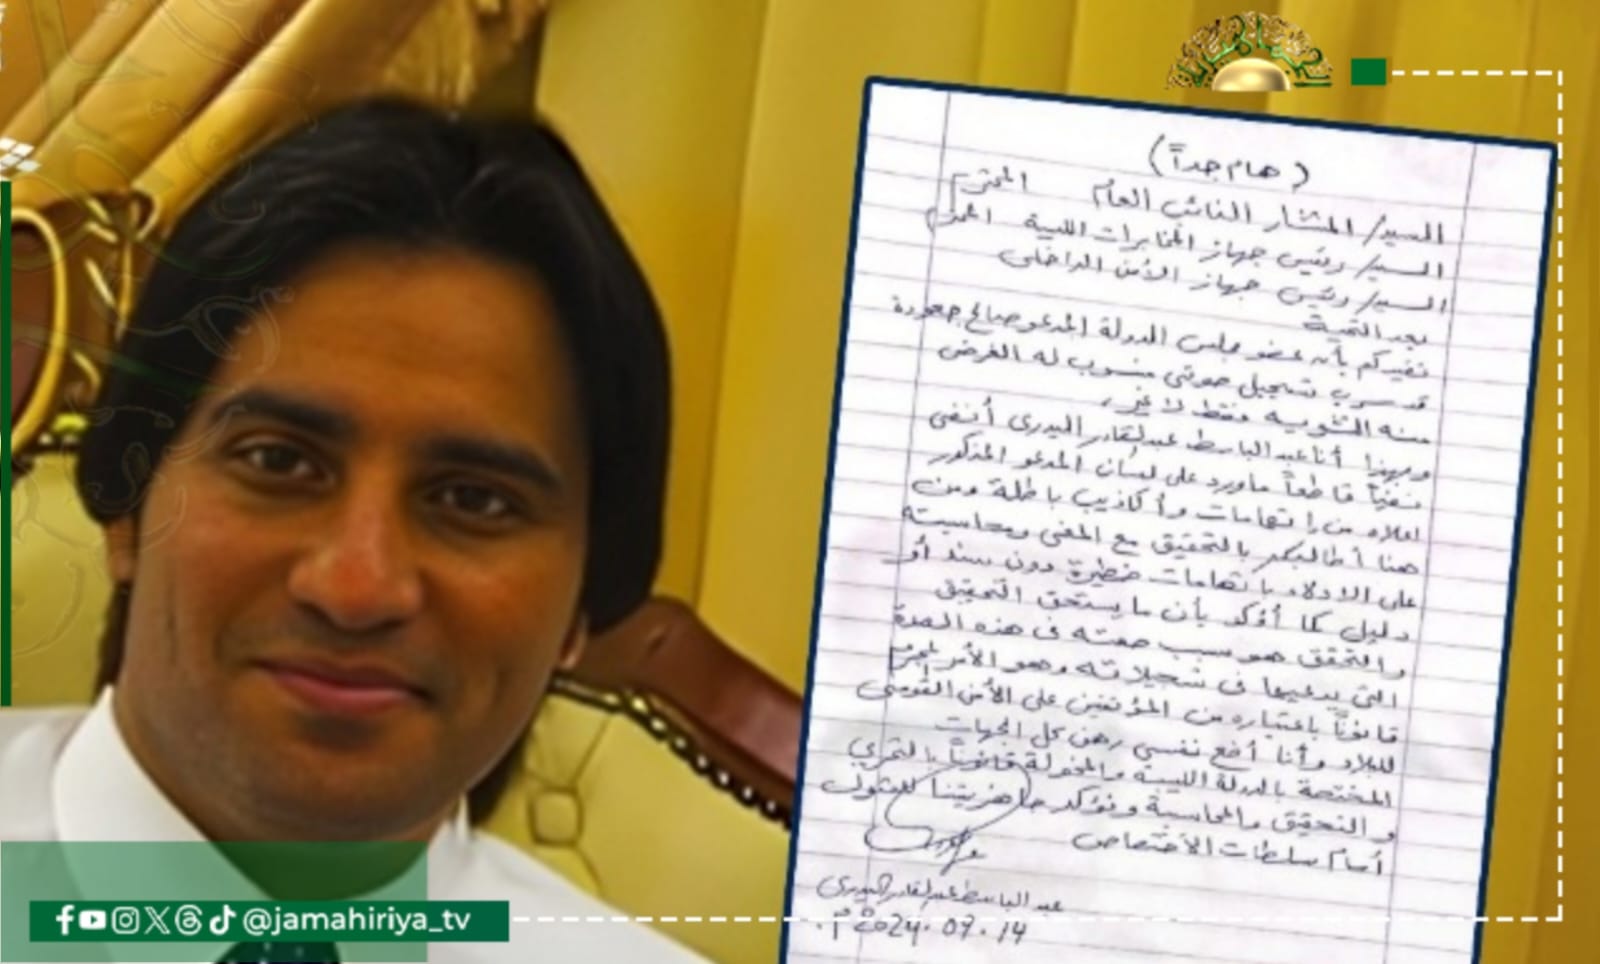 (هام جداً)
السيد/ المستشار النائب العام المحترم
السيد/ رئيس جهاز المخابرات الليبية المحترم
السيد/ رئيس جهاز الأمن الداخلى
بعد التحية
نفيدكم بأن عضو مجلس الدولة المدعو صالح جعودة
قد سرب تسجيل صوتى منسوب له الغرض
منه التشويه فقط لا غير،
وبهذا أنا عبدالباسط عبدالقادر البدرى أنفى
نفياً قاطعاً ماورد على لسان المدعو المذكور
اعلاه من إتهامات وأكاذيب باطلة ومن
هنا أطالبكم بالتحقيق مع المعنى ومحاسبته
على الادلاء باتهامات خطيرة دون سند أو
دليل كما أؤكد بأن ما يستحق التحقيق
والتحقق هو سبب صمته فى هذه المدة
التى يدعيها فى تسجيلاته وهو الأمر المجرم
قانوناً باعتباره من المؤتمنين على الأمن القومى
للبلاد وأنا أضع نفسى رهن كل الجهات
المختصة بالدولة الليبية والمخولة قانوناً بالتحرى
والتحقيق والمحاسبة ونؤكد جاهزيتنا للمثول
أمام سلطات الأختصاص
عبدالباسط عبدالقادر البدرى
2024.07.14م.
@jamahiriya_tv